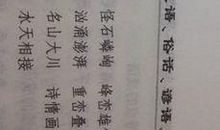 语、俗话、谚语
怪石嶙峋 峰峦雄
汹涌澎湃 重峦叠
名山大川 诗情画
水天相接